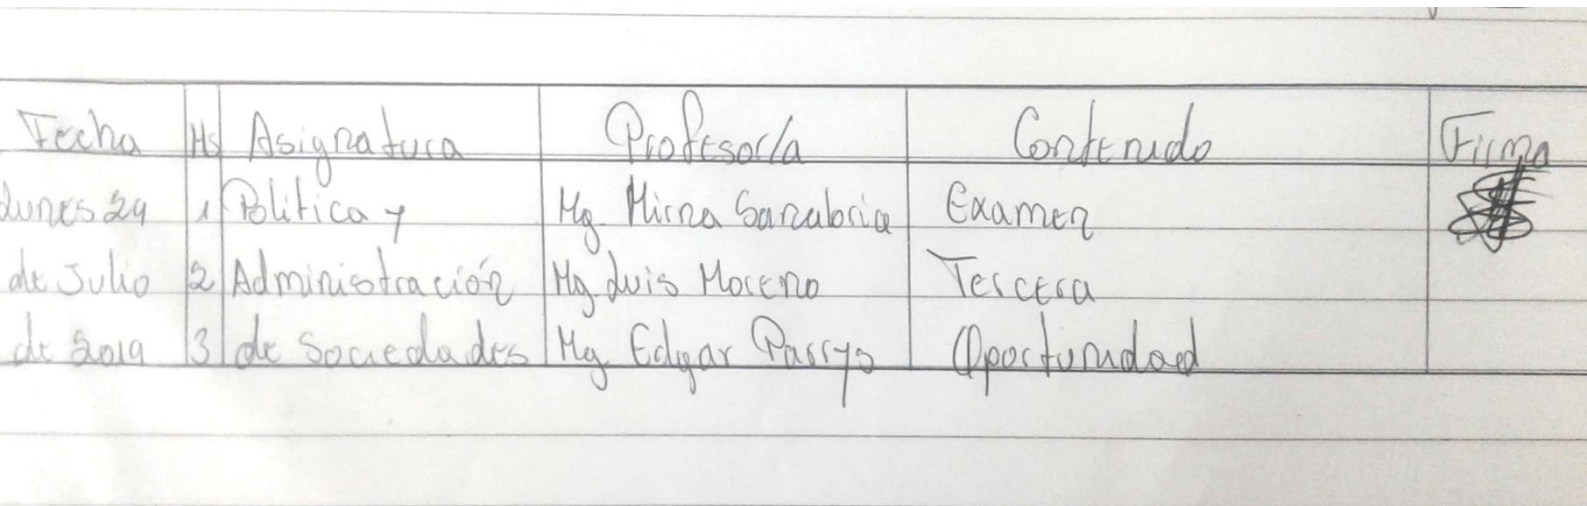 Fecha Hs Asignatura Profesor/a Contenido Firma
Lunes 29 1 Politica y Mg. Mirna Sanabria Examen
de Julio 2 Administración Mg Luis Moreno Tercera
de 2019 3 de Sociedades Mg Edgar Oportunidad